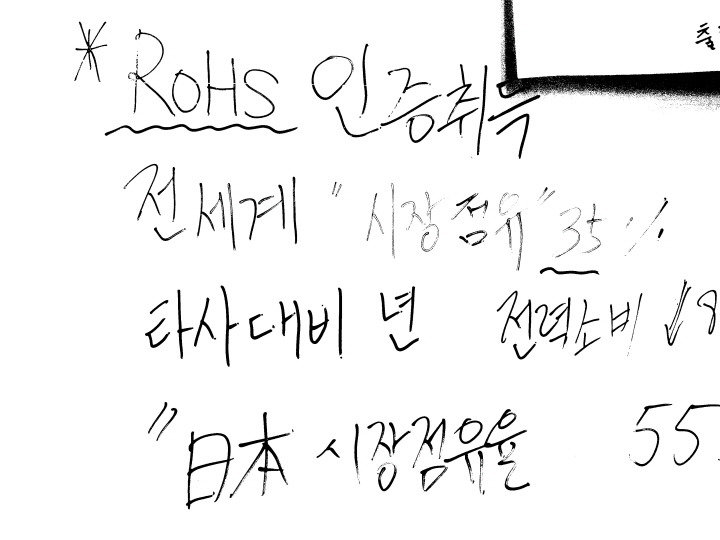 * RoHS 인증취득
전세계 "시장점유" 35%
타사대비 년 전력소비 ↓8
"日本 시장점유율 55